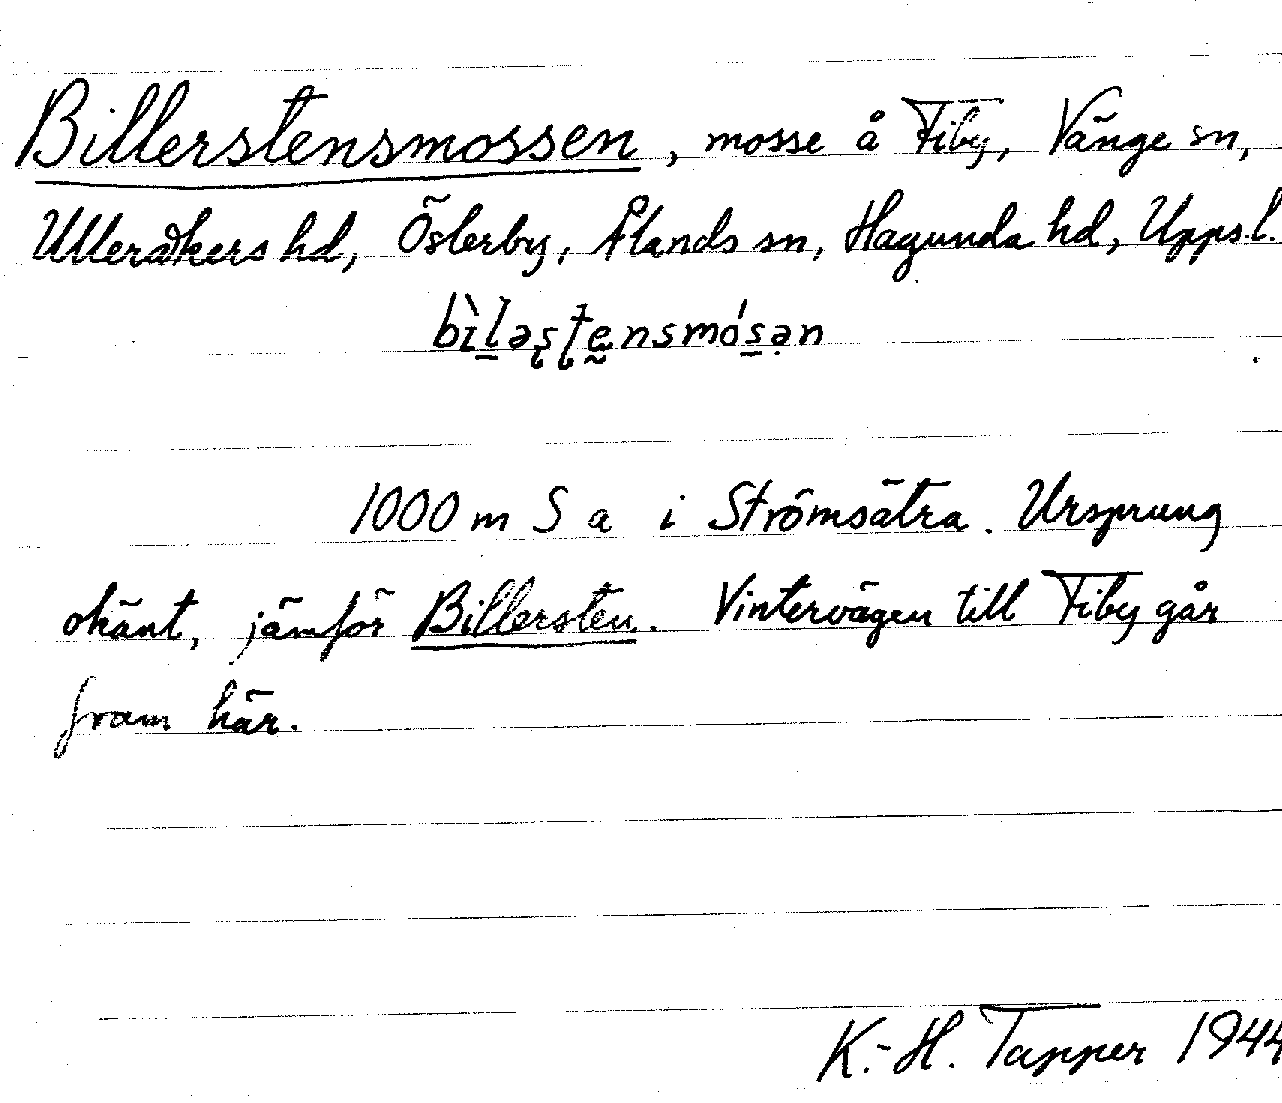 Billerstensmossen, mosse å Fiby, Vänge sn,
Ulleråkers hd, Österby, Ålands sn, Hagunda hd, Uppsl.
bìl̲əʂʈḛnsmós̲ən
1000 m S a i Strömsätra. Ursprung
okänt, jämför Billersten. Vintervägen till Fiby går
fram här.
K.-H. Tapper 1944